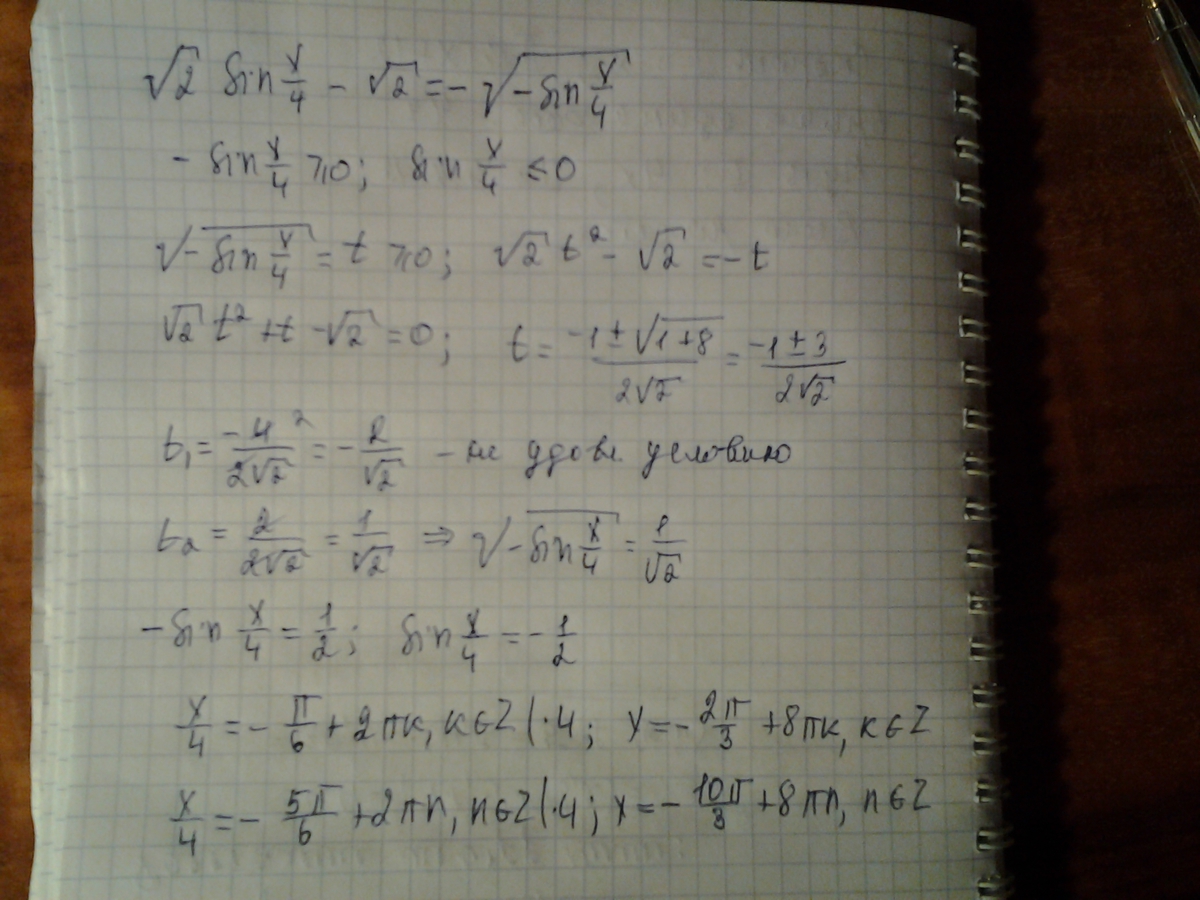 √2 sin x/4 - √2 = -√(-sin x/4)
- sin x/4 ≥ 0; sin x/4 ≤ 0
√(-sin x/4) = t ≥ 0; √2 t² - √2 = -t
√2 t² + t - √2 = 0; t = (-1 ± √(1+8))/(2√2) = (-1 ± 3)/(2√2)
t₁ = -4/(2√2) = -2/√2 - не удовл условию
t₂ = 2/(2√2) = 1/√2 ⇒ √(-sin x/4) = 1/√2
- sin x/4 = 1/2; sin x/4 = -1/2
x/4 = - π/6 + 2πк, к∈Z |·4; x = - 2π/3 + 8πк, к∈Z
x/4 = - 5π/6 + 2πn, n∈Z |·4; x = - 10π/3 + 8πn, n∈Z